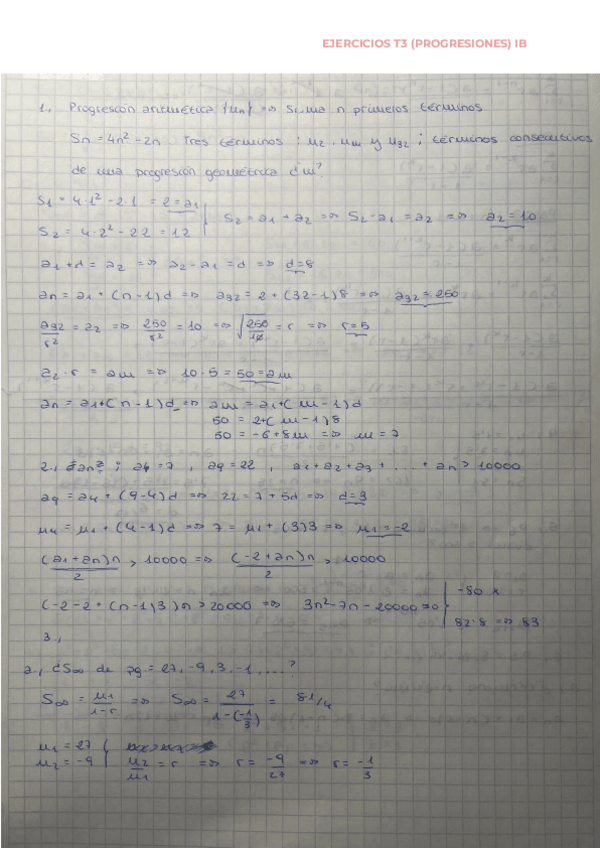 EJERCICIOS T3 (PROGRESIONES) IB
1. Progresión aritmética {un} => Suma n primeros términos
Sn = 4n² - 2n Tres términos : u2, um y u32 ; términos consecutivos
de una progresión geométrica ¿m?
S1 = 4·1² - 2·1 = 2 = a1
S2 = a1 + a2 => S2 - a1 = a2 => a2 = 10
S2 = 4·2² - 2·2 = 12
a1 + d = a2 => a2 - a1 = d => d = 8
an = a1 + (n-1)d => a32 = 2 + (32-1)8 => a32 = 250
a32/r² = a2 => 250/r² = 10 => √250/10 = r => r = 5
a2 · r = am => 10·5 = 50 = am
an = a1 + (n-1)d => am = a1 + (m-1)d
50 = 2 + (m-1)8
50 = -6 + 8m => m = 7
2., ; a4 = 7 , a9 = 22 , a1 + a2 + a3 + .... + an > 10000
a9 = a4 + (9-4)d => 22 = 7 + 5d => d = 3
u4 = u1 + (4-1)d => 7 = u1 + (3)3 => u1 = -2
(a1 + an)n/2 > 10000 => (-2 + an)n/2 > 10000
(-2 - 2 + (n-1)3)n > 20000 => 3n² - 7n - 20000 = 0 -80 x
82'8 => 83
3.,
a., ¿S∞ de pg = 27, -9, 3, -1 .....?
S∞ = u1/1-r => S∞ = 27/1-(-1/3) = 81/4
u1 = 27
u2 = -9 u2/u1 = r => r = -9/27 => r = -1/3